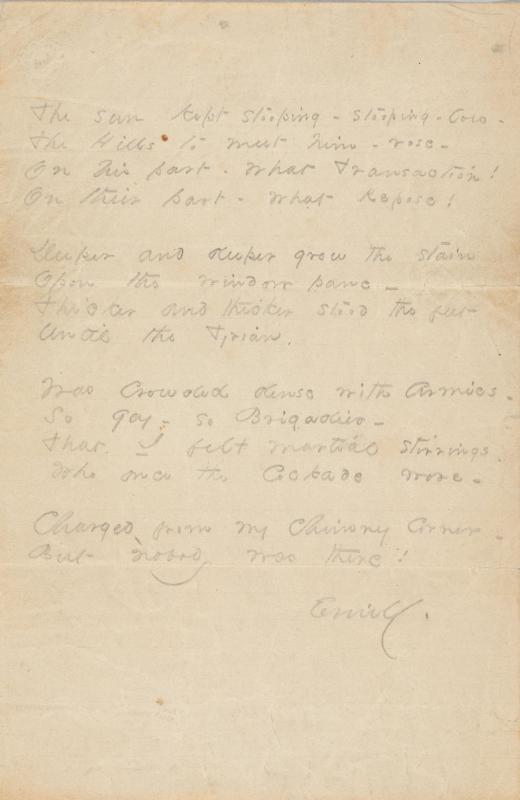 The sun kept stooping - stooping - low -
The Hills to meet him - rose -
On his part - what Transaction!
On their part - what Repose!
Deeper and deeper grew the stain
Upon the window pane -
Thicker and thicker stood the feet
Until the Tyrian.
Was Crowded dense with Armies -
So gay - So Brigadier -
That I felt martial stirrings
Who once the Cockade wore -
Charged from my Chimney Corner -
But Nobody was there!
Emily.